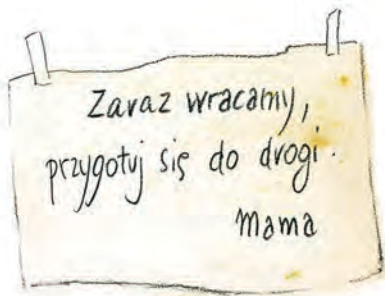 Zaraz wracamy,
przygotuj się do drogi.
Mama